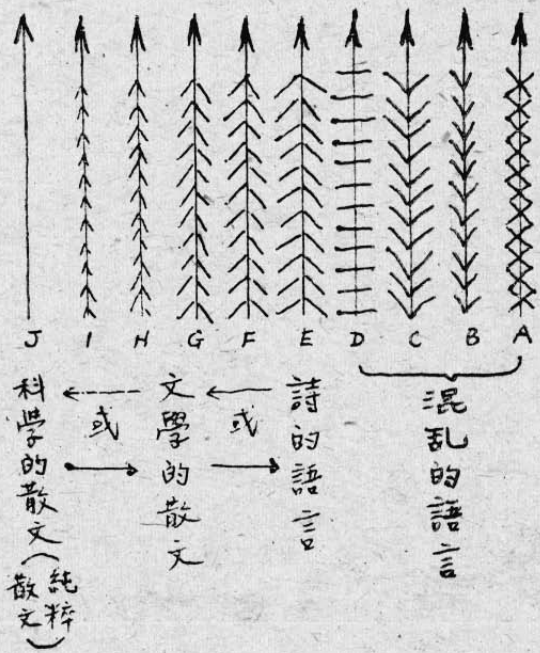 J I H G F E D C B A
混乱的語言
詩的語言
或
文學的散文
或
科學的散文(純粹散文)